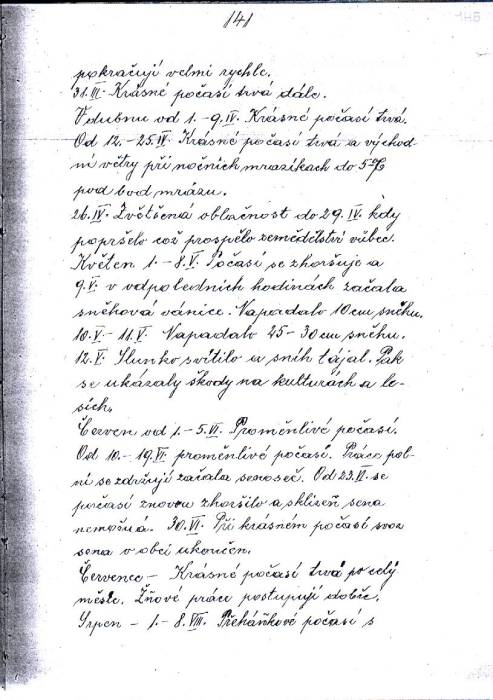 141
pokračují velmi rychle.
31.III. Krásné počasí trvá dále.
V dubnu od 1.-9.IV. Krásné počasí trvá.
Od 12.-25.IV. Krásné počasí trvá a východ-
ní větry při nočních mrazíkach do 5°C
pod bod mrazu.
26.IV. Zvětšená oblačnost do 29.IV. kdy
popršelo což prospělo zemědělství vůbec.
Květen 1.-8.V. Počasí se zhoršuje a
9.V. v odpoledních hodinách začala
sněhová vánice. Napadalo 10cm sněhu.
10.V.-11.V. Napadalo 25-30cm sněhu.
12.V. Slunko svítilo a sníh tájal. Pak
se ukázaly škody na kulturách a le-
sích.
Červen od 1.-5.VI. Proměnlivé počasí.
Od 10.-19.VI proměnlivé počasí. Práce pol-
ní se zdržují začala senoseč. Od 23.VI. se
počasí znovu zhoršilo a sklizeň sena
nemožná. 30.VI. Při krásném počasí svoz
sena v obci ukončen.
Červenec - Krásné počasí trvá po celý
měsíc. Žňové práce postupují dobře.
Srpen - 1.-8.VIII. Přeháňkové počasí s